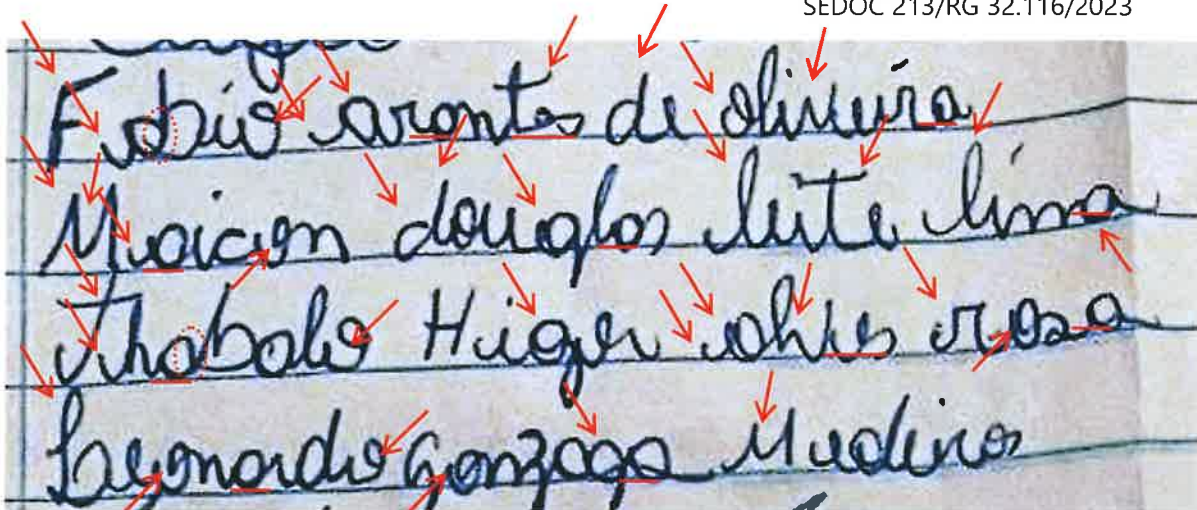 SEDOC 213/RG 32.116/2023
Fabio arantes de oliveira
Maicon douglas leite lima
Thabalo Higor alves rosa
Leonardo Gonzaga Medeiros